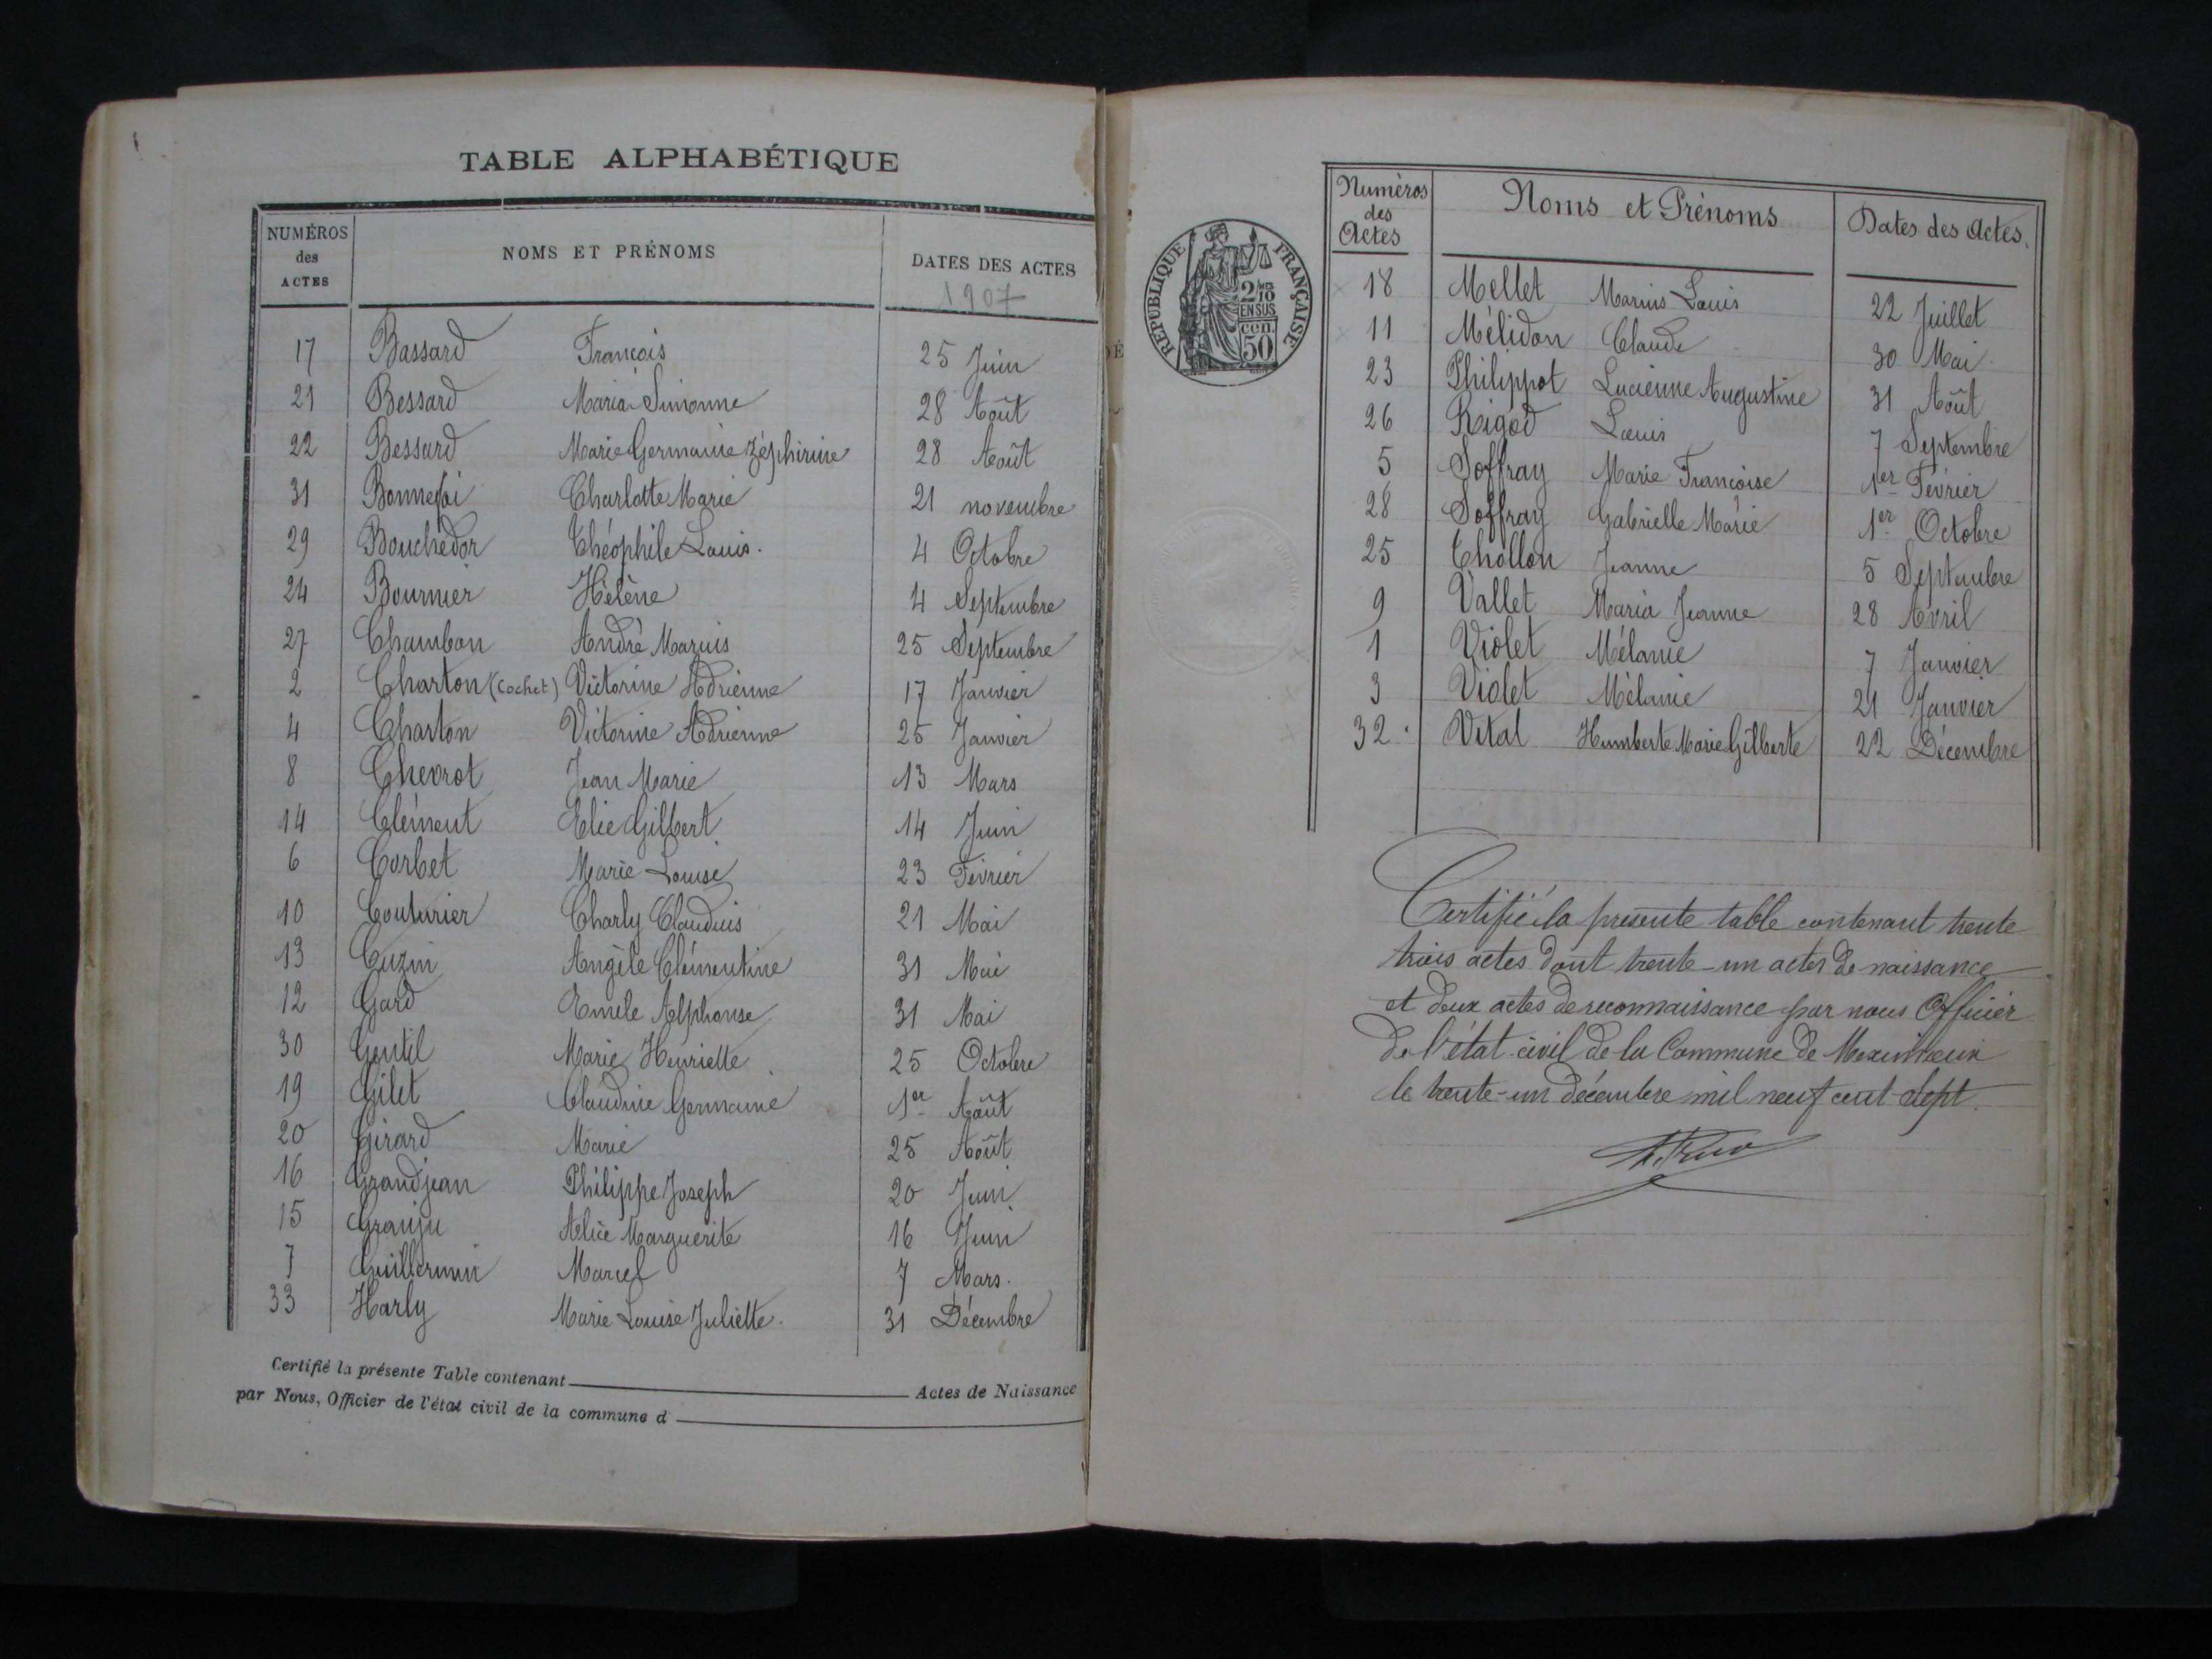 TABLE ALPHABÉTIQUE
NUMÉROS des ACTES NOMS ET PRÉNOMS DATES DES ACTES
1907
17 Bassard François 25 Juin
21 Bessard Maria Simonne 28 Août
22 Bessard Marie Germaine Zéphirine 28 Août
31 Bonnefoi Charlotte Marie 21 novembre
29 Bouchedor Théophile Louis. 4 Octobre
24 Bournier Hélène 4 Septembre
27 Chambon André Marius 25 Septembre
2 Charton (Cochet) Victorine Adrienne 17 Janvier
4 Charton Victorine Adrienne 25 Janvier
8 Chevrot Jean Marie 13 Mars
14 Clément Elie Gilbert 14 Juin
6 Corbet Marie Louise 23 Février
10 Couturier Charly Claudius 21 Mai
13 Cuzin Angèle Clémentine 31 Mai
12 Gard Emile Alphonse 31 Mai
30 Gentil Marie Henriette 25 Octobre
19 Gilet Claudine Germaine 1er Août
20 Girard Marie 25 Août
16 Grandjean Philippe Joseph 20 Juin
15 Granju Alice Marguerite 16 Juin
7 Guillermin Marcel 7 Mars.
33 Harly Marie Louise Juliette. 31 Décembre
Certifié la présente Table contenant Actes de Naissance
par Nous, Officier de l'état civil de la commune d
RÉPUBLIQUE FRANÇAISE
2/10
EN SUS
cen.
50
Numéros des Actes Noms et Prénoms Dates des Actes.
18 Mellet Marius Louis 22 Juillet
11 Mélidon Claude 30 Mai
23 Philippot Lucienne Augustine 31 Août
26 Rigod Louis 7 Septembre
5 Soffray Marie Françoise 1er Février
28 Soffray Gabrielle Marie 1er Octobre
25 Thollon Jeanne 5 Septembre
9 Vallet Maria Jeanne 28 Avril
1 Violet Mélanie 7 Janvier
3 Violet Mélanie 21 Janvier
32. Vital Humberte Marie Gilberte 22 Décembre
Certifié la présente table contenant trente
trois actes dont trente-un actes de naissance
et deux actes de reconnaissance par nous Officier
de l'état-civil de la Commune de Meximieux
le trente-un décembre mil neuf cent sept.